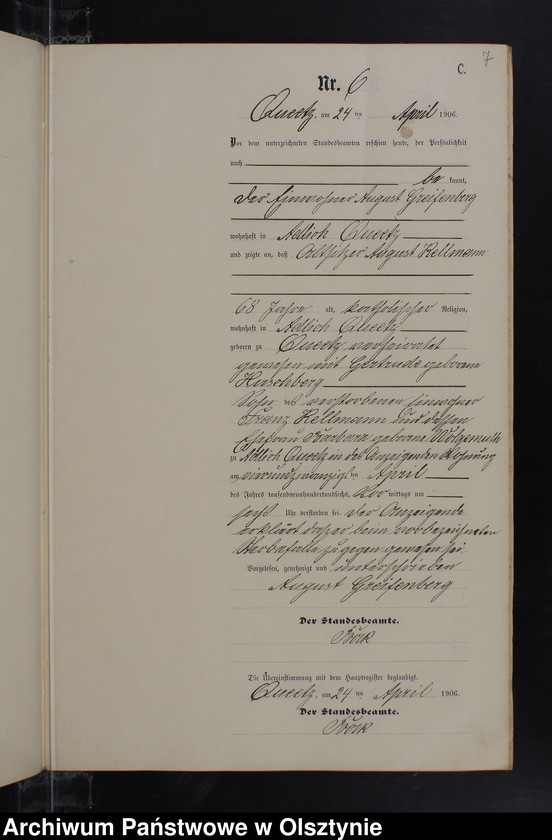 7
C.
Nr. 6
Queetz, am 24 ten April 1906.
Vor dem unterzeichneten Standesbeamten erschien heute, der Persönlichkeit
nach
be kannt,
der Einwohner August Greifenberg
wohnhaft in Adlich Queetz
und zeigte an, daß Altsitzer August Hellmann
68 Jahre alt, katholischer Religion,
wohnhaft in Adlich Queetz
geboren zu Queetz verheiratet
gewesen mit Gertrude geborene
Hirschberg
Sohn des verstorbenen Einwohner
Franz Hellmann und dessen
Ehefrau Barbara geborene Wolgemuth
zu Adlich Queetz in des Anzeigenden Wohnung
am vierundzwanzigsten April
des Jahres tausendneunhundertundsechs, Vor mittags um
sechs Uhr verstorben sei. Der Anzeigende
erklärt daß er beim vorbezeichneten
Sterbefalle zugegen gewesen sei
Vorgelesen, genehmigt und unterschrieben
August Greifenberg
Der Standesbeamte.
Böck
Die Übereinstimmung mit dem Hauptregister beglaubigt.
Queetz, am 24 ten April 1906.
Der Standesbeamte.
Böck
Archiwum Państwowe w Olsztynie